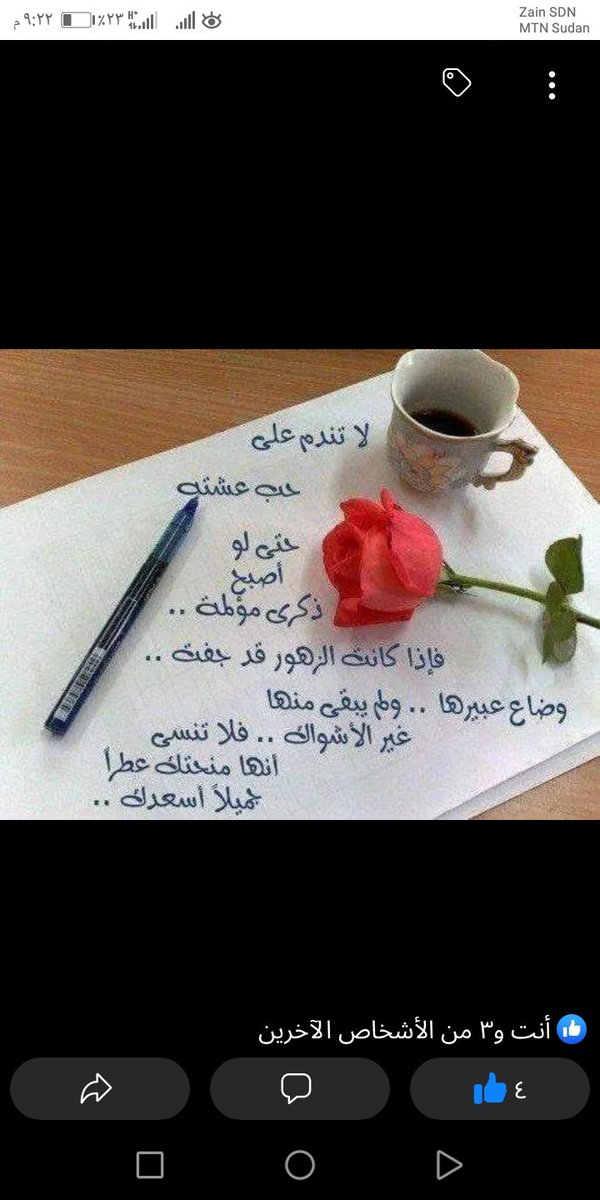 Zain SDN
MTN Sudan
٩:٢٢ م
٪٢٣
H+
لا تندم على
حب عشته
حتى لو
أصبح
ذكرى مؤلمة ..
فإذا كانت الزهور قد جفت ..
وضاع عبيرها .. ولم يبقى منها
غير الأشواك .. فلا تنسى
أنها منحتك عطراً
جميلاً أسعدك ..
أنت و٣ من الأشخاص الآخرين
٤